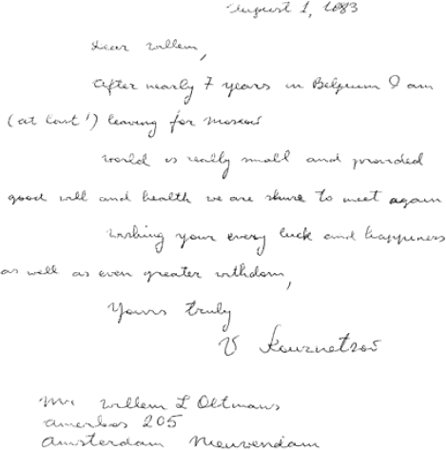 August 1, 1983
Dear Willem,
After nearly 7 years in Belgium I am
(at last!) leaving for Moscow
World is really small and provided
good will and health we are shure to meet again
Wishing your every luck and happiness
as well as even greater withdom,
Yours truly
V Kouznetzov
Mr Willem L Oltmans
Amerbos 205
Amsterdam Nieuwendam